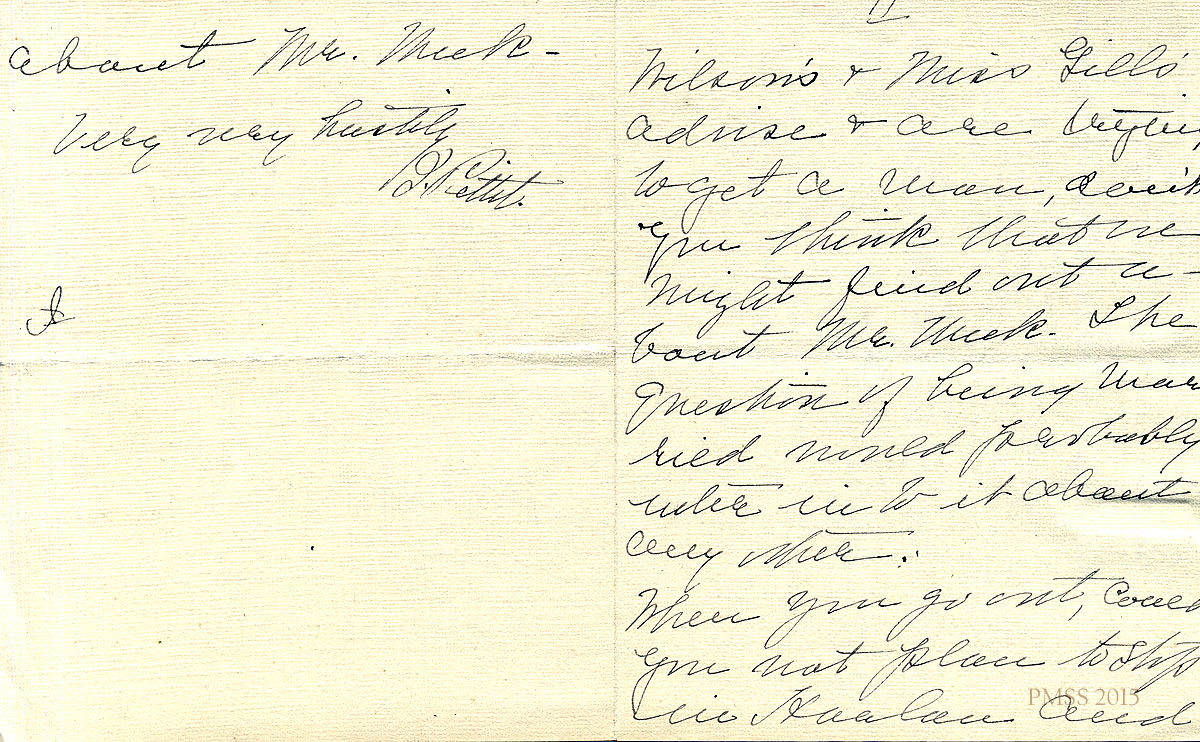 about Mr. Meek -
Very very hastily
K. Pettit.
II
Wilson's & Miss Gill's
advise & are trying
to get a man, don't
you think that we
might find out a-
bout Mr. Meek. The
question of being mar
ried would probably
enter in to it about
any other.
When you go out, could
you not plan to stop
in Harlan and
PMSS 2015